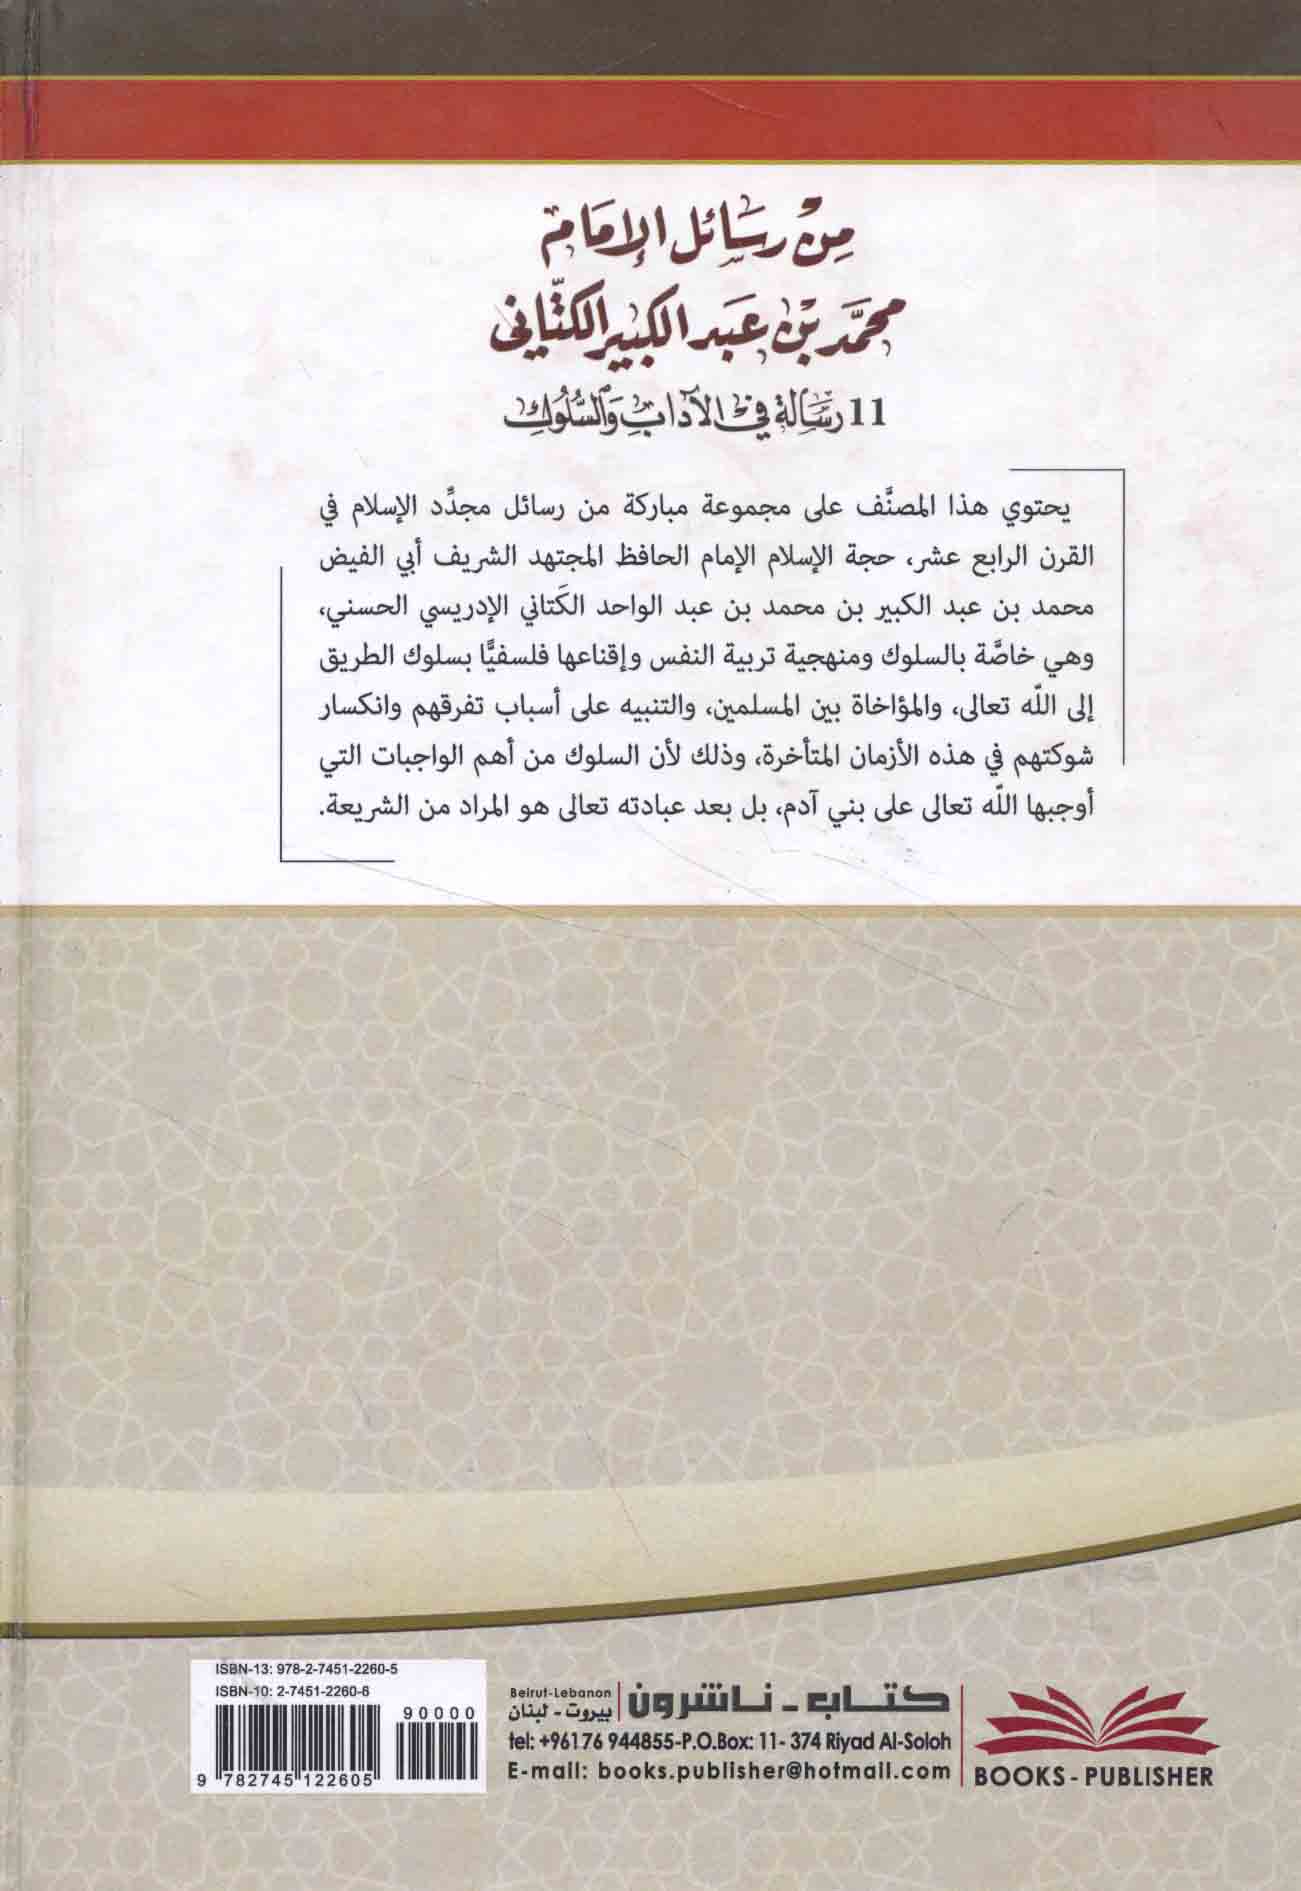 من رسائل الإمام
محمد بن عبد الكبير الكتاني
11 رسالة في الآداب والسلوك
يحتوي هذا المصنَّف على مجموعة مباركة من رسائل مجدِّد الإسلام في
القرن الرابع عشر، حجة الإسلام الإمام الحافظ المجتهد الشريف أبي الفيض
محمد بن عبد الكبير بن محمد بن عبد الواحد الكَتاني الإدريسي الحسني،
وهي خاصَّة بالسلوك ومنهجية تربية النفس وإقناعها فلسفيًّا بسلوك الطريق
إلى اللّه تعالى، والمؤاخاة بين المسلمين، والتنبيه على أسباب تفرقهم وانكسار
شوكتهم في هذه الأزمان المتأخرة، وذلك لأن السلوك من أهم الواجبات التي
أوجبها اللّه تعالى على بني آدم، بل بعد عبادته تعالى هو المراد من الشريعة.
ISBN-13: 978-2-7451-2260-5
ISBN-10: 2-7451-2260-6
90000
9 782745 122605
كتاب - ناشرون
Beirut-Lebanon
بيروت - لبنان
tel: +96176 944855-P.O.Box: 11- 374 Riyad Al-Soloh
E-mail: books.publisher@hotmail.com
BOOKS - PUBLISHER